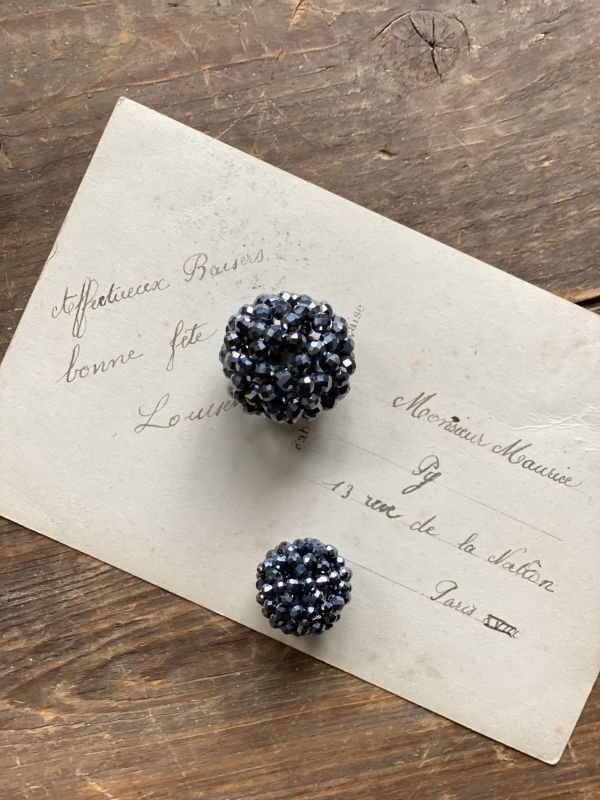 Affectueux Baisers
bonne fête
Louise
Monsieur Maurice
13 rue de la Natôn
Paris